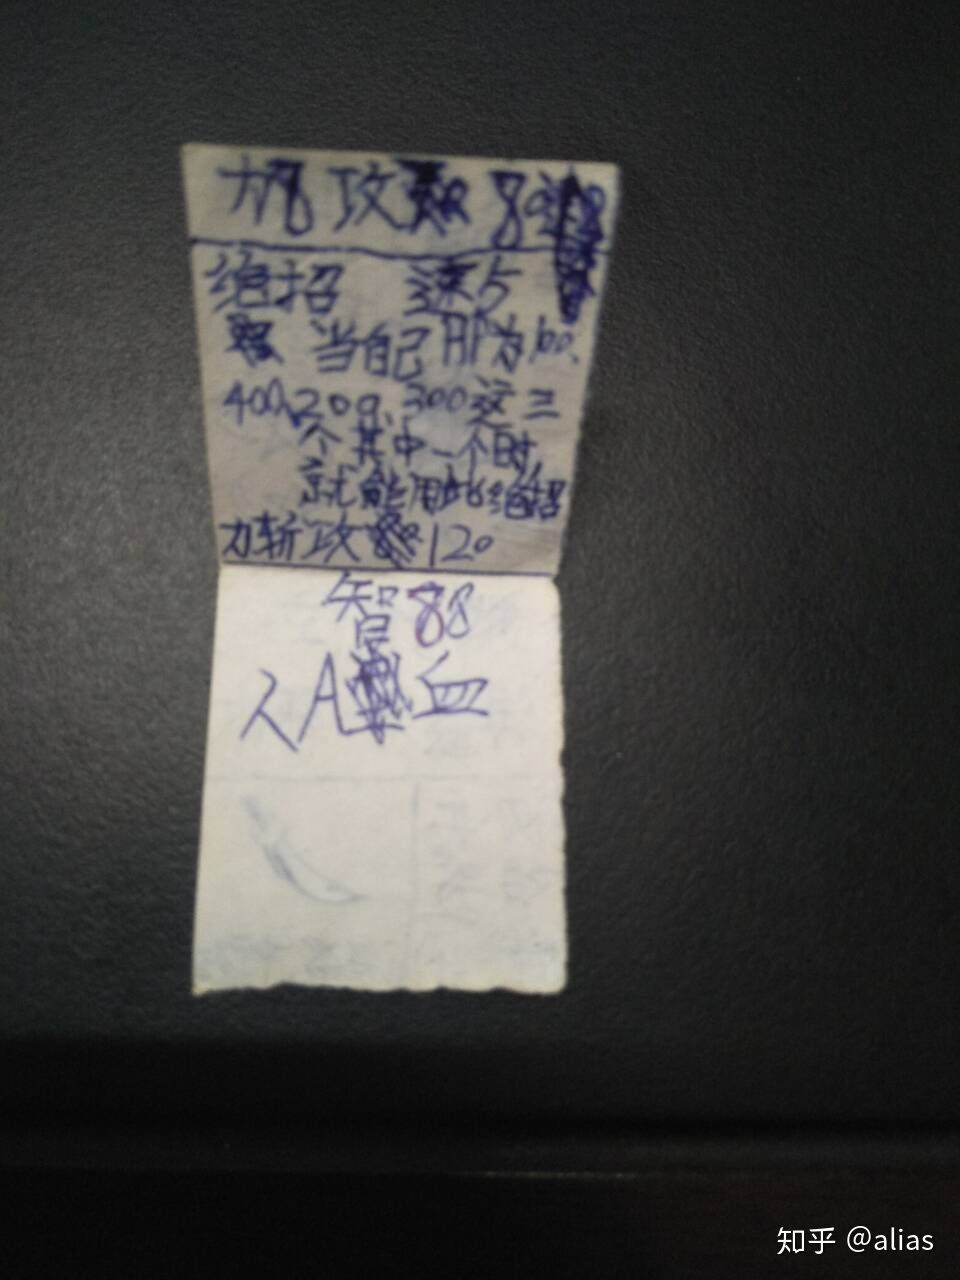 力8 攻 80
绝招 速占
当自己 HP为100、
400、200、300这三
个其中一个时,
就能用此绝招
力斩攻 120
智88
入A 血
知乎 @alias